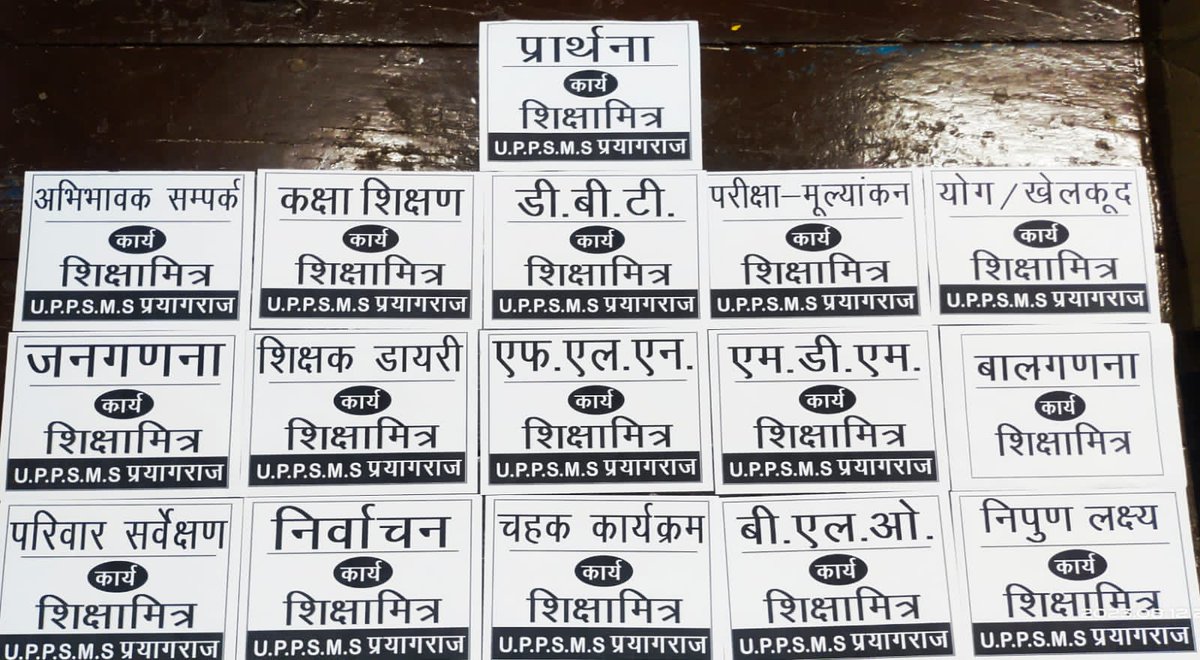 प्रार्थना
कार्य
शिक्षामित्र
U.P.P.S.M.S प्रयागराज
अभिभावक सम्पर्क
कार्य
शिक्षामित्र
U.P.P.S.M.S प्रयागराज
कक्षा शिक्षण
कार्य
शिक्षामित्र
U.P.P.S.M.S प्रयागराज
डी.बी.टी.
कार्य
शिक्षामित्र
U.P.P.S.M.S प्रयागराज
परीक्षा–मूल्यांकन
कार्य
शिक्षामित्र
U.P.P.S.M.S प्रयागराज
योग/खेलकूद
कार्य
शिक्षामित्र
U.P.P.S.M.S प्रयागराज
जनगणना
कार्य
शिक्षामित्र
U.P.P.S.M.S प्रयागराज
शिक्षक डायरी
कार्य
शिक्षामित्र
U.P.P.S.M.S प्रयागराज
एफ.एल.एन.
कार्य
शिक्षामित्र
U.P.P.S.M.S प्रयागराज
एम.डी.एम.
कार्य
शिक्षामित्र
U.P.P.S.M.S प्रयागराज
बालगणना
कार्य
शिक्षामित्र
परिवार सर्वेक्षण
कार्य
शिक्षामित्र
U.P.P.S.M.S प्रयागराज
निर्वाचन
कार्य
शिक्षामित्र
U.P.P.S.M.S प्रयागराज
चहक कार्यक्रम
कार्य
शिक्षामित्र
U.P.P.S.M.S प्रयागराज
बी.एल.ओ.
कार्य
शिक्षामित्र
U.P.P.S.M.S प्रयागराज
निपुण लक्ष्य
कार्य
शिक्षामित्र
2023.08.12
U.P.P.S.M.S प्रयागराज